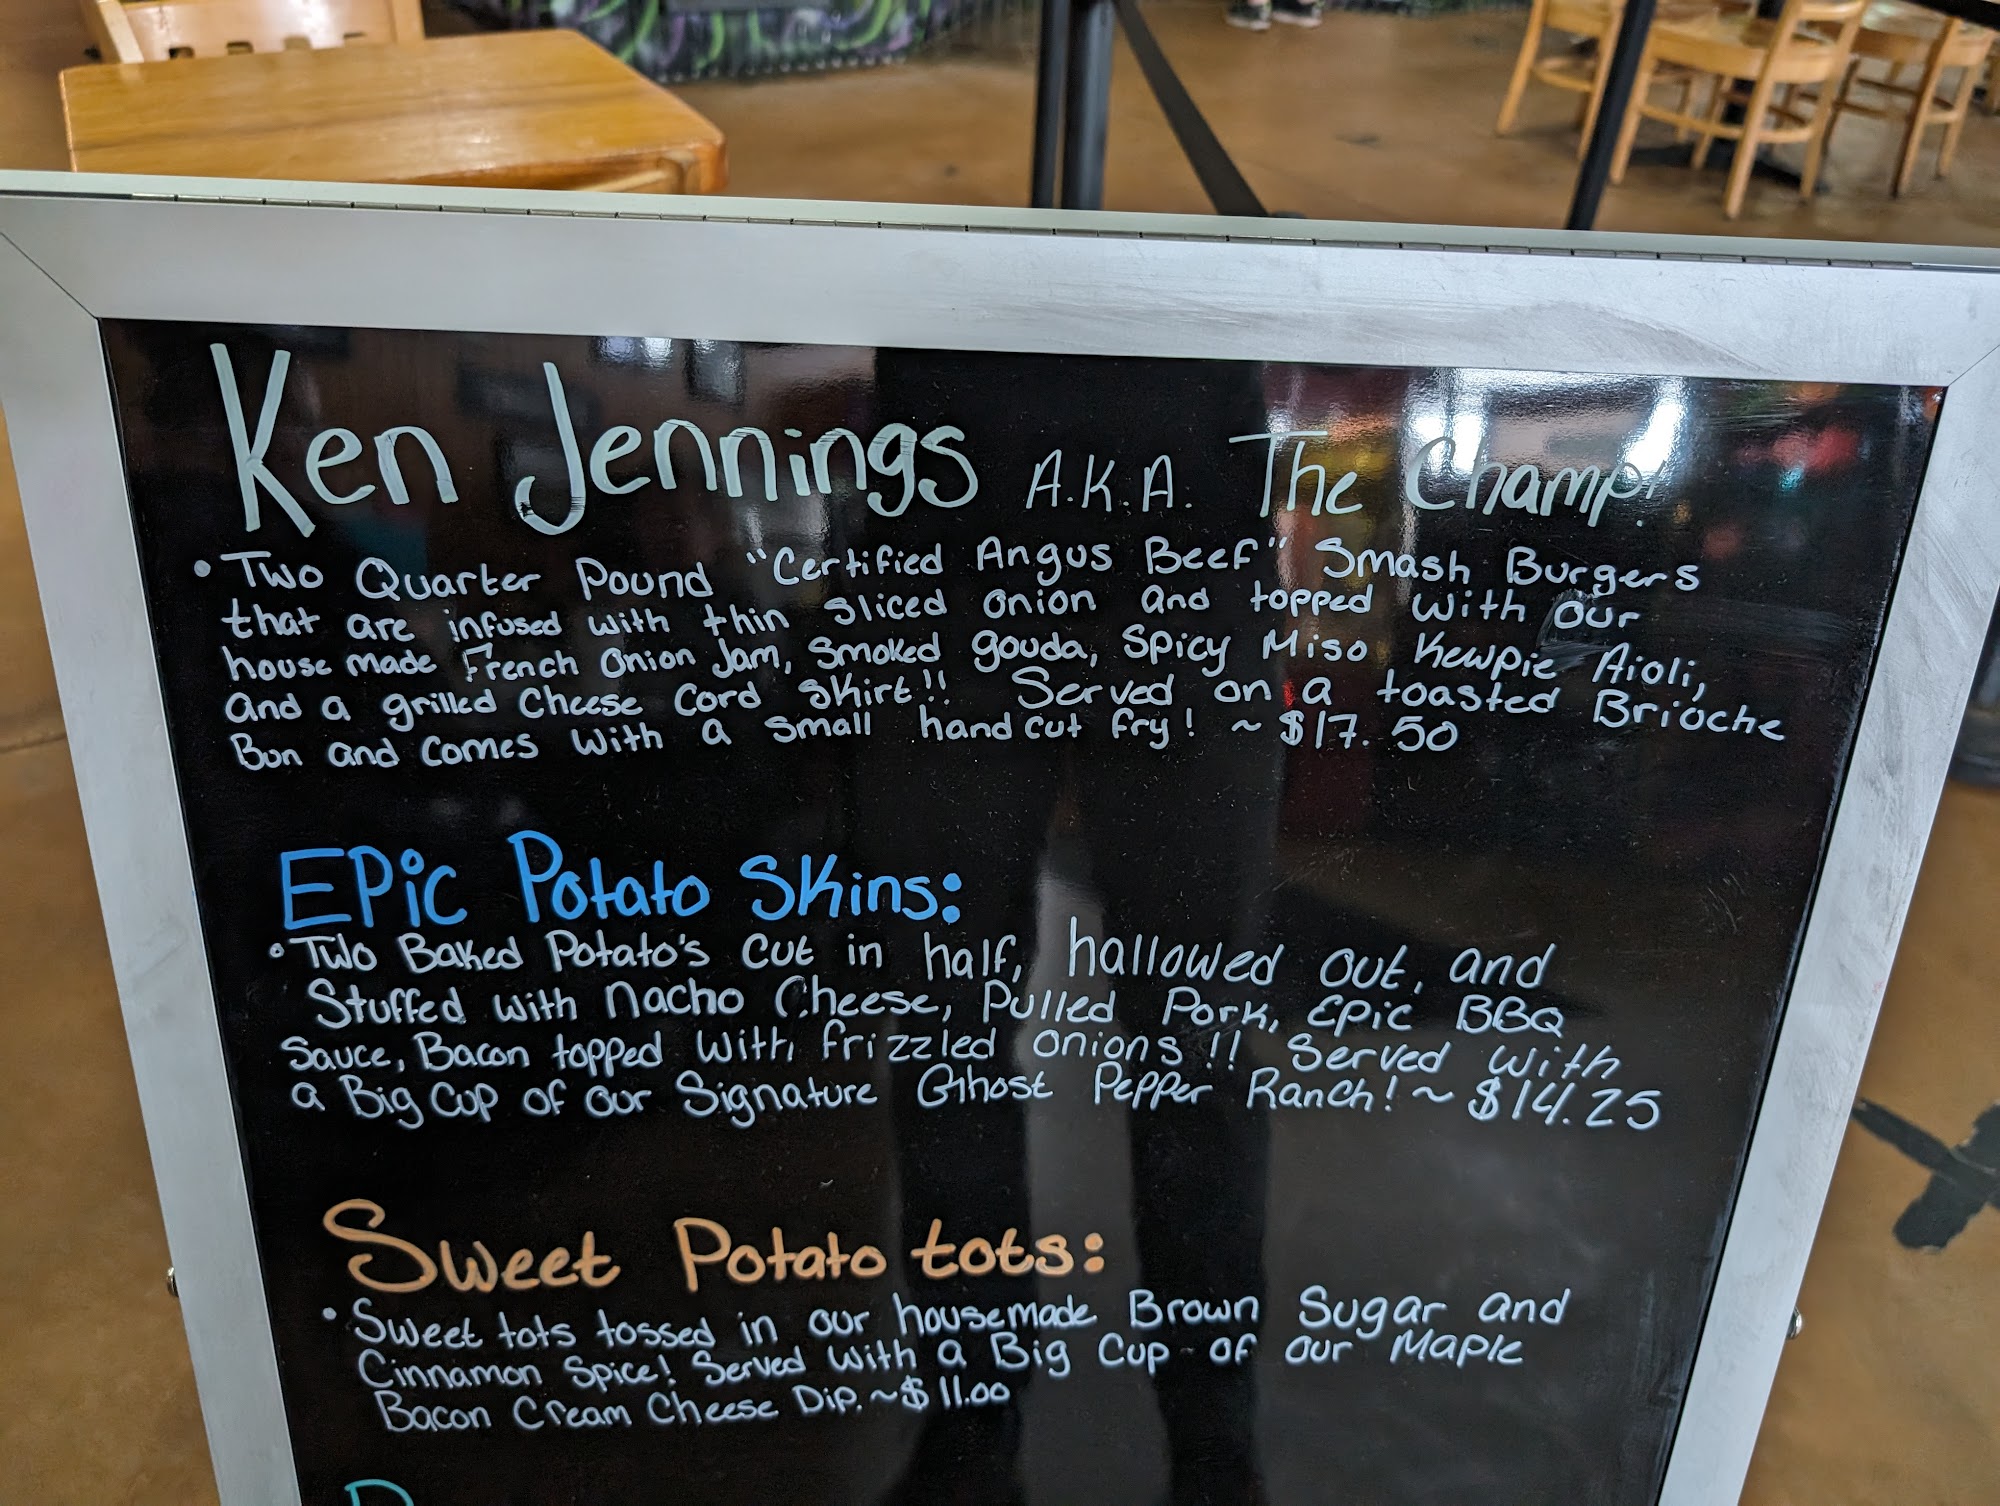 Ken Jennings A.K.A. The Champ!
• Two Quarter Pound "Certified Angus Beef" Smash Burgers
that are infused with thin sliced onion and topped with our
house made French Onion Jam, Smoked gouda, Spicy Miso Kewpie Aioli,
and a grilled Cheese Cord Skirt!! Served on a toasted Brioche
Bun and comes with a small hand cut fry! ~ $17.50
EPic Potato Skins:
• Two Baked Potato's cut in half, hallowed out, and
Stuffed with Nacho Cheese, Pulled Pork, Epic BBQ
Sauce, Bacon topped with frizzled onions!! Served with
a Big Cup of our Signature Ghost Pepper Ranch! ~ $14.25
Sweet Potato tots:
• Sweet tots tossed in our housemade Brown Sugar and
Cinnamon Spice! Served with a Big Cup of our Maple
Bacon Cream Cheese Dip. ~ $11.00